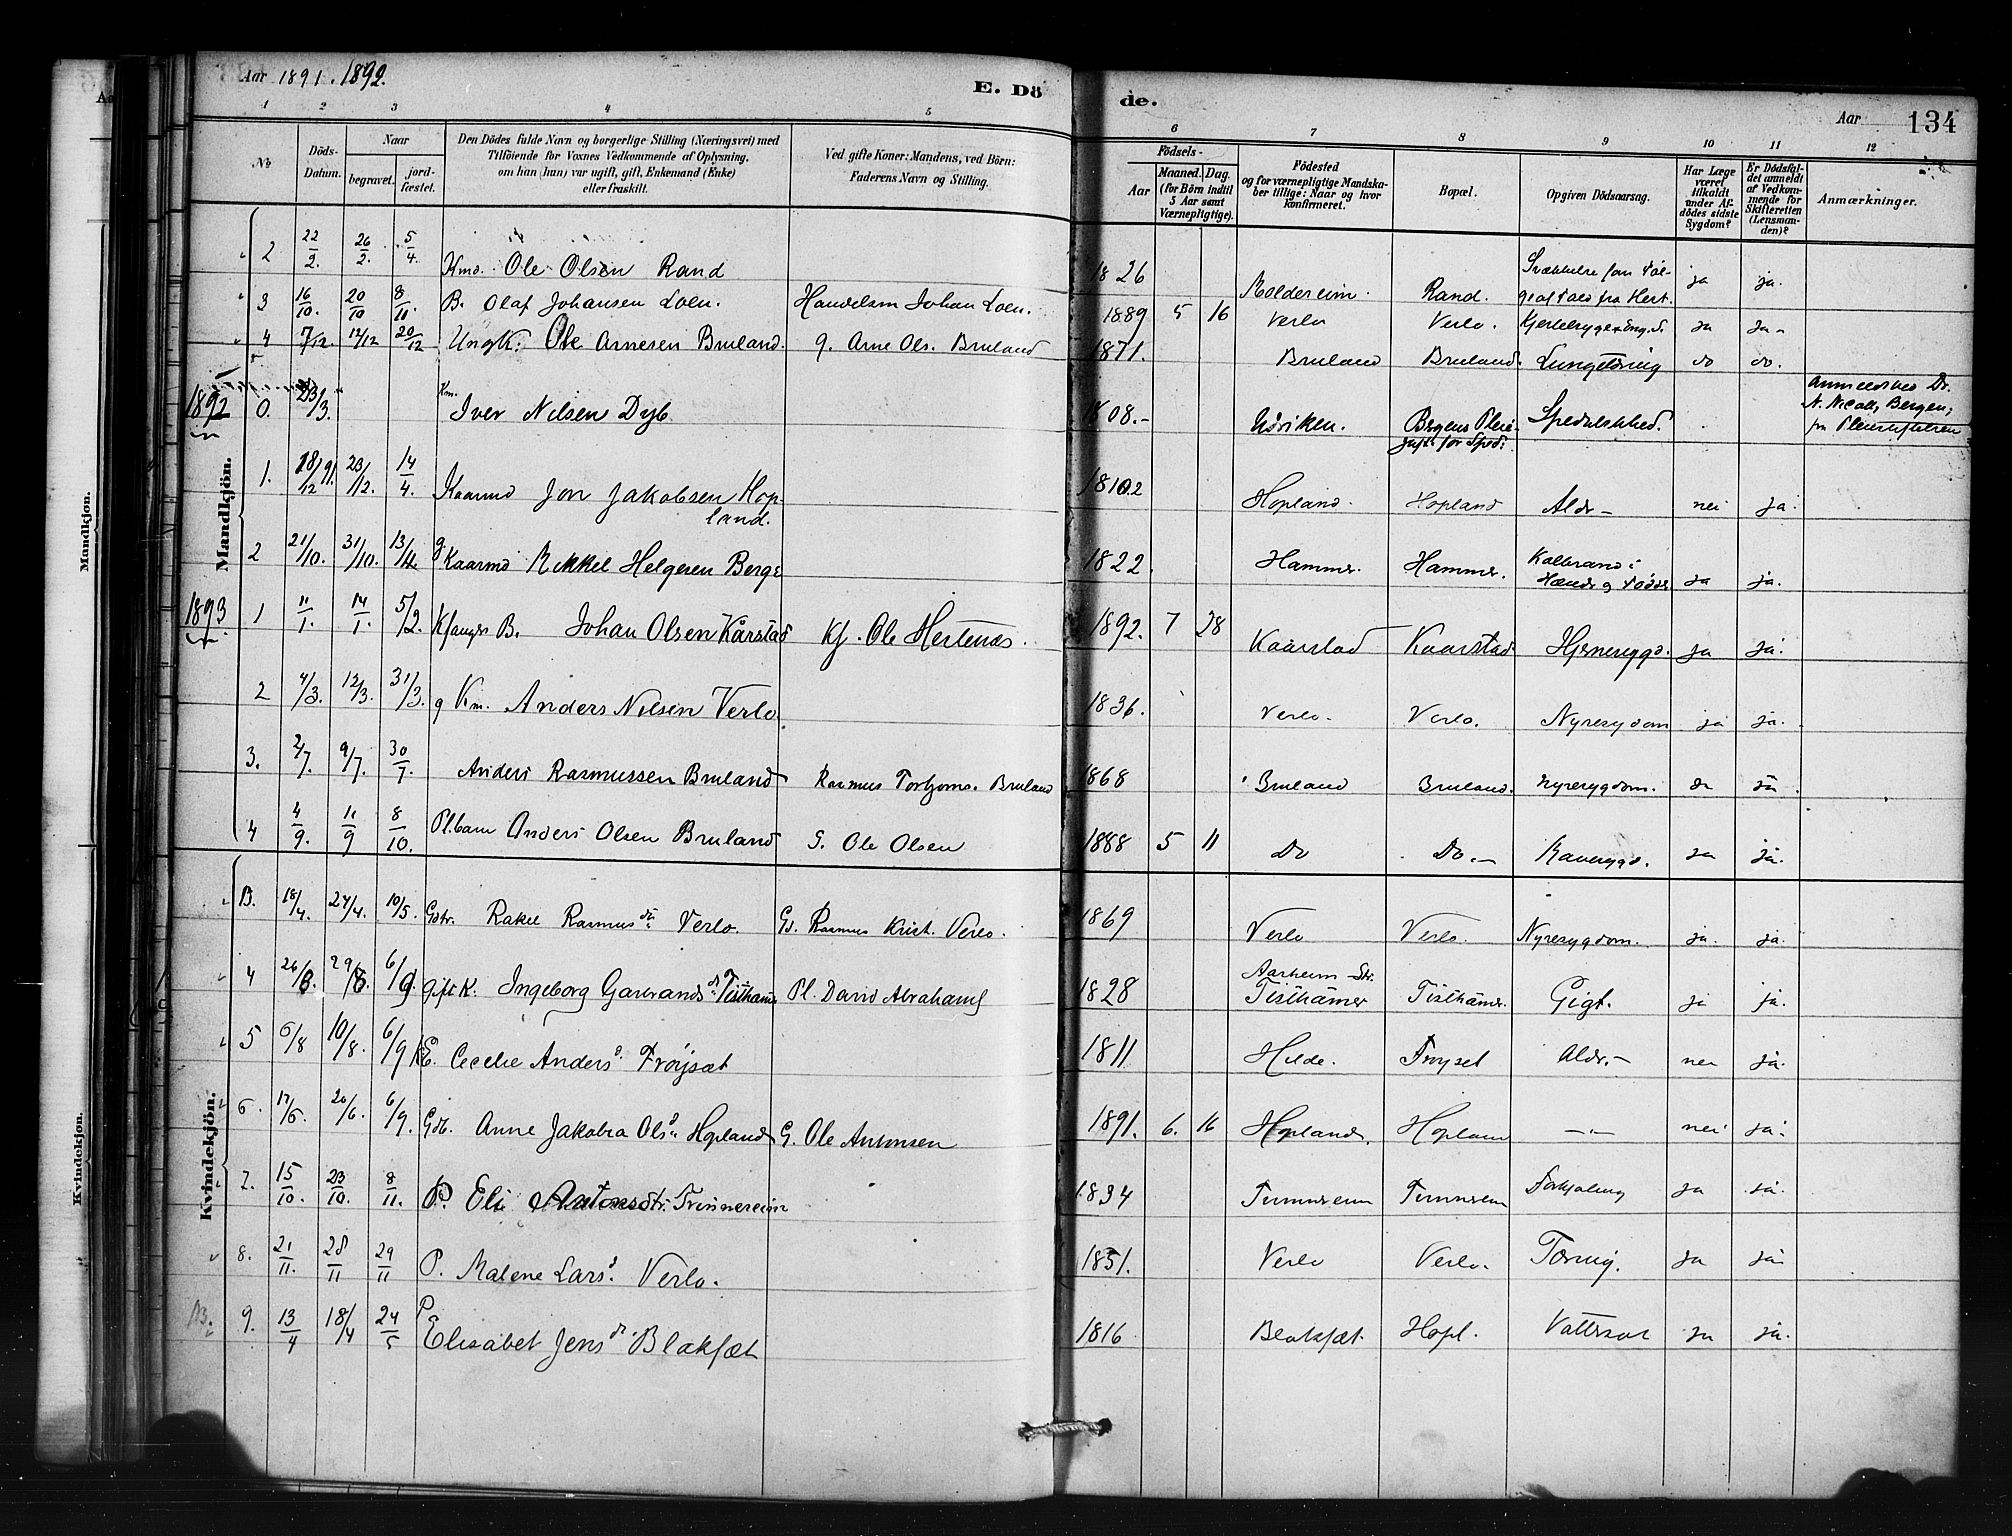 Aar 1891. 1892.
E. Dö
de.
Aar
134
1 2 3 4 5
6 7 8 9 10 11 12
No
Döds-Datum.
Naar
begravet.
jord-fæstet.
Den Dödes fulde Navn og borgerlige Stilling (Næringsvei) med
Tilföiende for Voxnes Vedkommende af Oplysning,
om han (hun) var ugift, gift, Enkemand (Enke)
eller fraskilt.
Ved gifte Koner: Mandens, ved Börn:
Faderens Navn og Stilling.
Födsels-
Aar
Maaned.
Dag.
(for Börn indtil
5 Aar samt
Værnepligtige).
Födested
og for værnepligtige Mandska-
ber tillige: Naar og hvor
konfirmeret.
Bopæl.
Opgiven Dödsaarsag.
Har Læge
været
tilkaldt
under Af-
dödes sidste
Sygdom?
Er Dödsfal-
det anmeldt
af Vedkom-
mende for
Skifteretten
(Lensman-
den)?
Anmærkninger.
Mandkjön.
2 22/2. 26/2. 5/4. Kmd. Ole Olsen Rand 1826 Rand. ja ja.
3 16/10. 20/10 8/11 B. Olaf Johansen Loen. Handelsm Johan Loen. 1889 5 16 Verlo Verlo. ja ja
4 7/12. 12/12 20/12 Ungk. Ole Arnesen Bruland. g. Arne Ols. Bruland 1871. Bruland Bruland. do do.
1892 0. 23/3. Km. Iver Nilsen Dyb. 08.- Spedalskhed. N. Nicoll, Bergen, fra Pleiestiftelsen
1. 18/12 91. 23/12. 14/4. Kaarmd Jon Jakobsen Hopland. 1810.2 Hopland. Hopland Aldr- nei ja.
2 21/10. 31/10. 13/11. g. Kaarmd Mikkel Helgesen Berge 1822. Hammer. Hammer. Kolbrand i Hænder og Födder ja ja.
1893 1 11/1. 14/1. 5/2. B. Johan Olsen Kårstad Kf. Ole Hestenæs. 1892. 7 28 Kaarstad Kaarstad Hjernesygd. ja ja.
2 4/3. 12/3. 31/3. g Km. Anders Nilsen Verlo. 1836. Verlo. Verlo. Nyresygdom ja ja.
3. 2/7. 9/7. 30/7. Anders Rasmussen Bruland Rasmus Torbjorns. Bruland 1868 Bruland Bruland. Nyresygdom. ja
4 4/9. 11/9 8/10. Pl.barn Anders Olsen Bruland G. Ole Olsen 1888 5 11 Do Do.- ja ja.
Kvindekjön.
B. 18/4. 24/4. 10/5. Gdtr. Rakel Rasmusdtr. Verlo. Gd. Rasmus Krist. Verlo. 1869 Verlo Verlo. Nyresygdom. ja. ja.
4 26/8. 29/8. 6/9 Gift K. Ingeborg Garbrandsd. Tisthamr Pl. David Abrahams 1828 Aarheim Str. Tisthamer Tisthamr. Gigt. ja ja.
5 6/8 10/8. 6/9 KE. Cecelie Andersd. Fröysæt 1811 Hilde. Fröyset Aldr.- nei ja.
6. 17/6. 20/6. 6/9. Gdb. Anne Jakobea Olsd. Hopland G. Ole Antonsen 1891. 6. 16 Hopland. Hopland -.- nei ja.
7. 15/10. 23/10. 8/11. P. Eli Antonsdtr. Tvinnereim 1834 Forkjöling ja ja.
8. 21/11. 28/11 29/11 P. Malene Larsd. Verlo. 1851. Verlo Verlo. Tæring. ja ja.
9. 13/4 18/4 24/5 P Elisabet Jensd. Blaksæt 1816 Blaksæt. Hopl. Vattersot ja ja.
Mandkjön.
Kvindekjön.